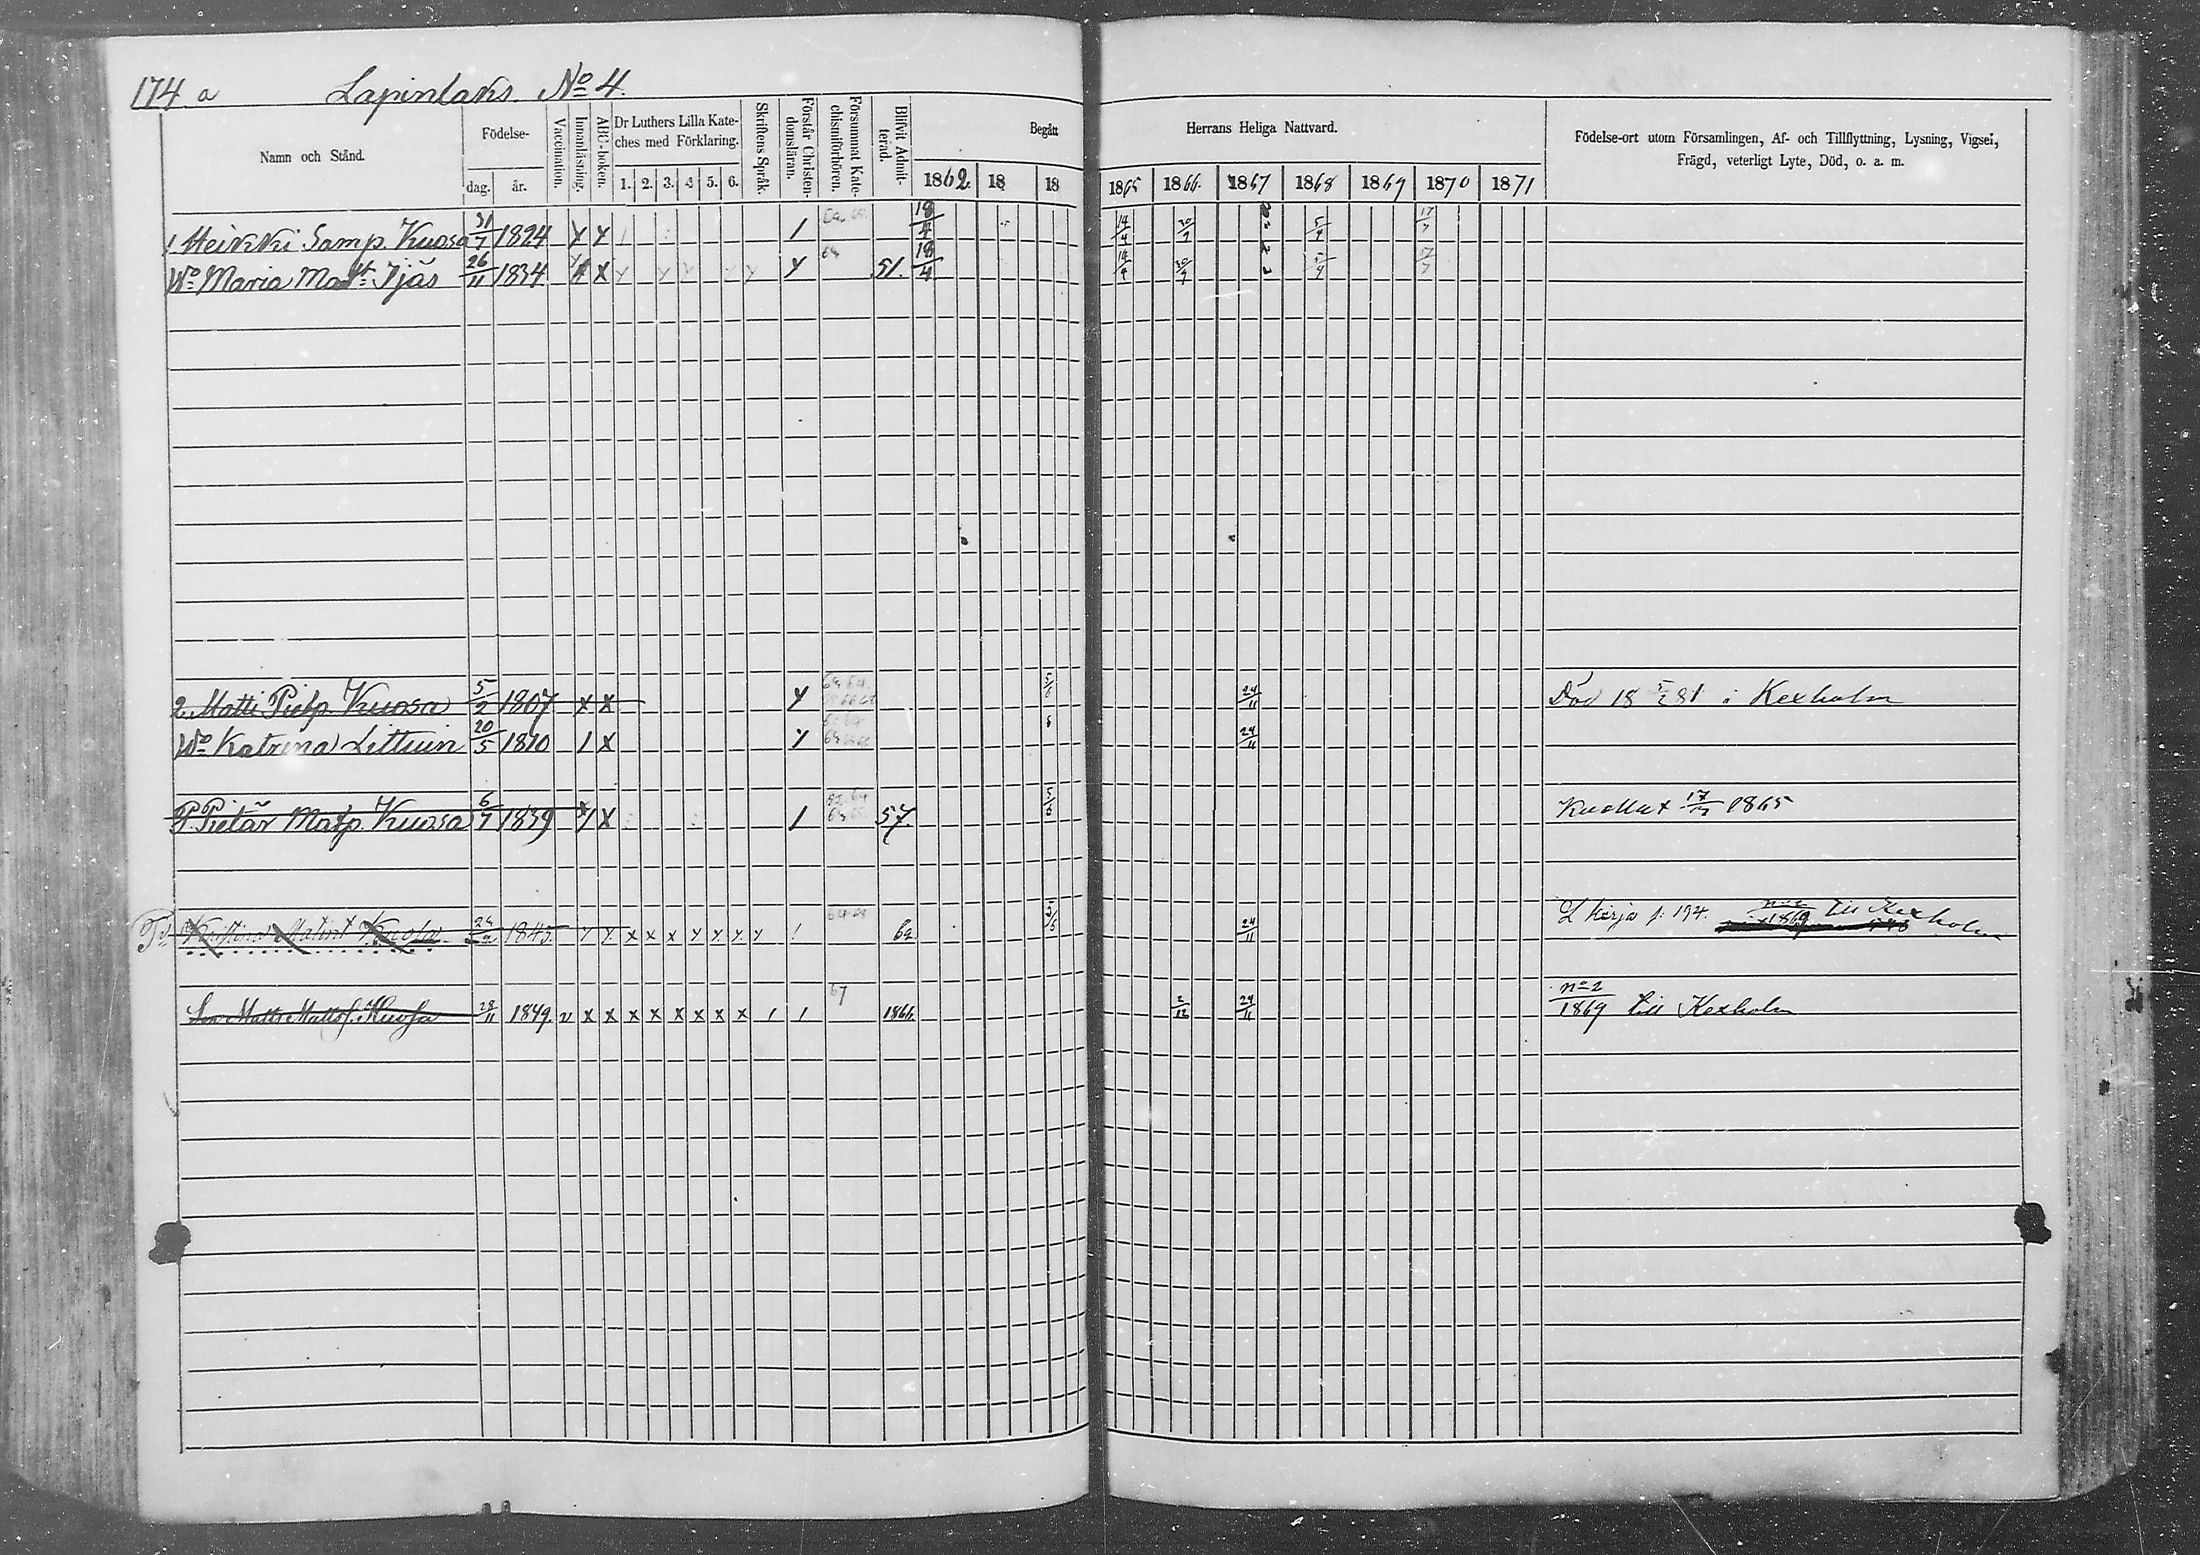 174 a Lapinlaks No 4.
Namn och Stånd.
Födelse-
dag. år.
Vaccination.
Innanläsning.
ABC-boken.
Dr Luthers Lilla Kate-
ches med Förklaring.
1. 2. 3. 4. 5. 6.
Skriftens Språk.
Förstår Christen-
domsläran.
Försummat Kate-
chismiförhören.
Blifvit Admit-
terad.
Begått
1862. 18 18
Herrans Heliga Nattvard.
1865 1866. 1867 1868 1869 1870 1871
Födelse-ort utom Församlingen, Af- och Tillflyttning, Lysning, Vigsel,
Frägd, veterligt Lyte, Död, o. a. m.
1. Heikki Samp. Kuosa 31/7 1824 x x 1 18/4 14/4 30/9 5/9 17/7
Wo Maria Matt. Ijäs 26/11 1834 x x y 51. 18/4 14/4 30/9 5/9 17/7
2. Matti Pietp. Kuosa 5/2 1807 x x y 24/11 Död 18 5/2 81 i Kexholm
Wo Katrina Littuin 20/5 1810 1 x y 24/11
P. Pietär Matp. Kuosa 6/7 1839 y x 1 57. Kuollut 17/12 1865
Ty. Kristina Matint. Kuosa 1845 y y x x x y y y y 1 24/11 L kirja p: 194. no 2/1869 till Kexholm
Son Matts Mattsf. Kuosa 28/11 1849. v x x x x x x x x 1 1 67 1866. 2/12 24/11 no 2/1869 till Kexholm